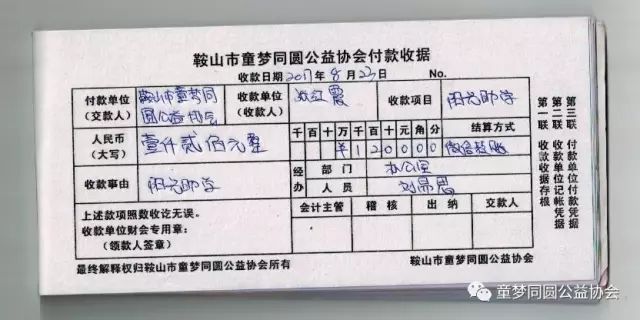 鞍山市童梦同圆公益协会付款收据
收款日期2017年8月23日 No.
付款单位 鞍山市童梦同 收款单位 霞 收款项目 阳光助学
(交款人) 圆公益协会 (收款人)
人民币 壹仟贰佰元整 千百十万千百十元角分 结算方式
(大写) ¥120000 微信转账
经 部门 办公室
收款事由 阳光助学 办 人员 刘
上述款项照数收讫无误。 会计主管 稽核 出纳 交款人
收款单位财会专用章:
(领款人签章)
最终解释权归鞍山市童梦同圆公益协会所有 鞍山市童梦同圆公益协会
第一联 收款收据存根
第二联 收款单位记帐凭据
第三联 付款单位付款凭据
童梦同圆公益协会